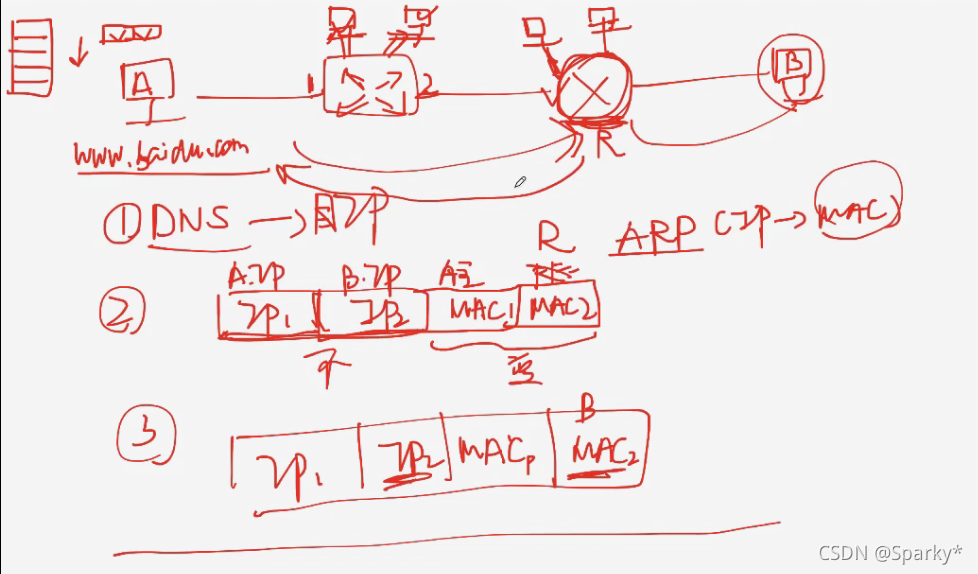 A
1
2
B
R
www.baidu.com
① DNS → 目IP
ARP (IP → MAC)
R
A.IP B.IP A主
② IP1 IP2 MAC1 MAC2
不
变
B
③ IP1 IP2 MACR MAC2
CSDN @Sparky*